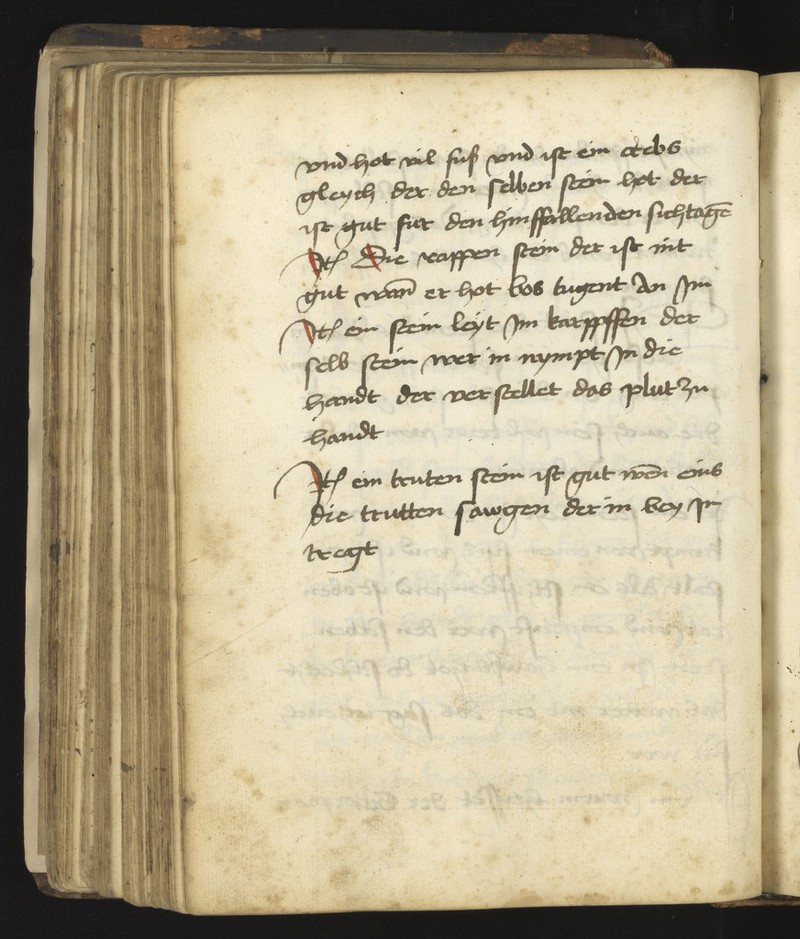 vnd hot vil fuß vnd ist ein crebs
gleych der den selben stein hot der
ist gut fur den hinffallenden sichtagē
Itē Die rappen stein der ist nit
gut wan̄ er hot bos tugent An Im
Itē ein stein leyt Im karppffen der
selb stein wer in nympt In die
handt der verstellet das plut zu
handt
Itē ein truten stein ist gut wen̄ eins
die trutten sawgen der in bey Ir
tregt